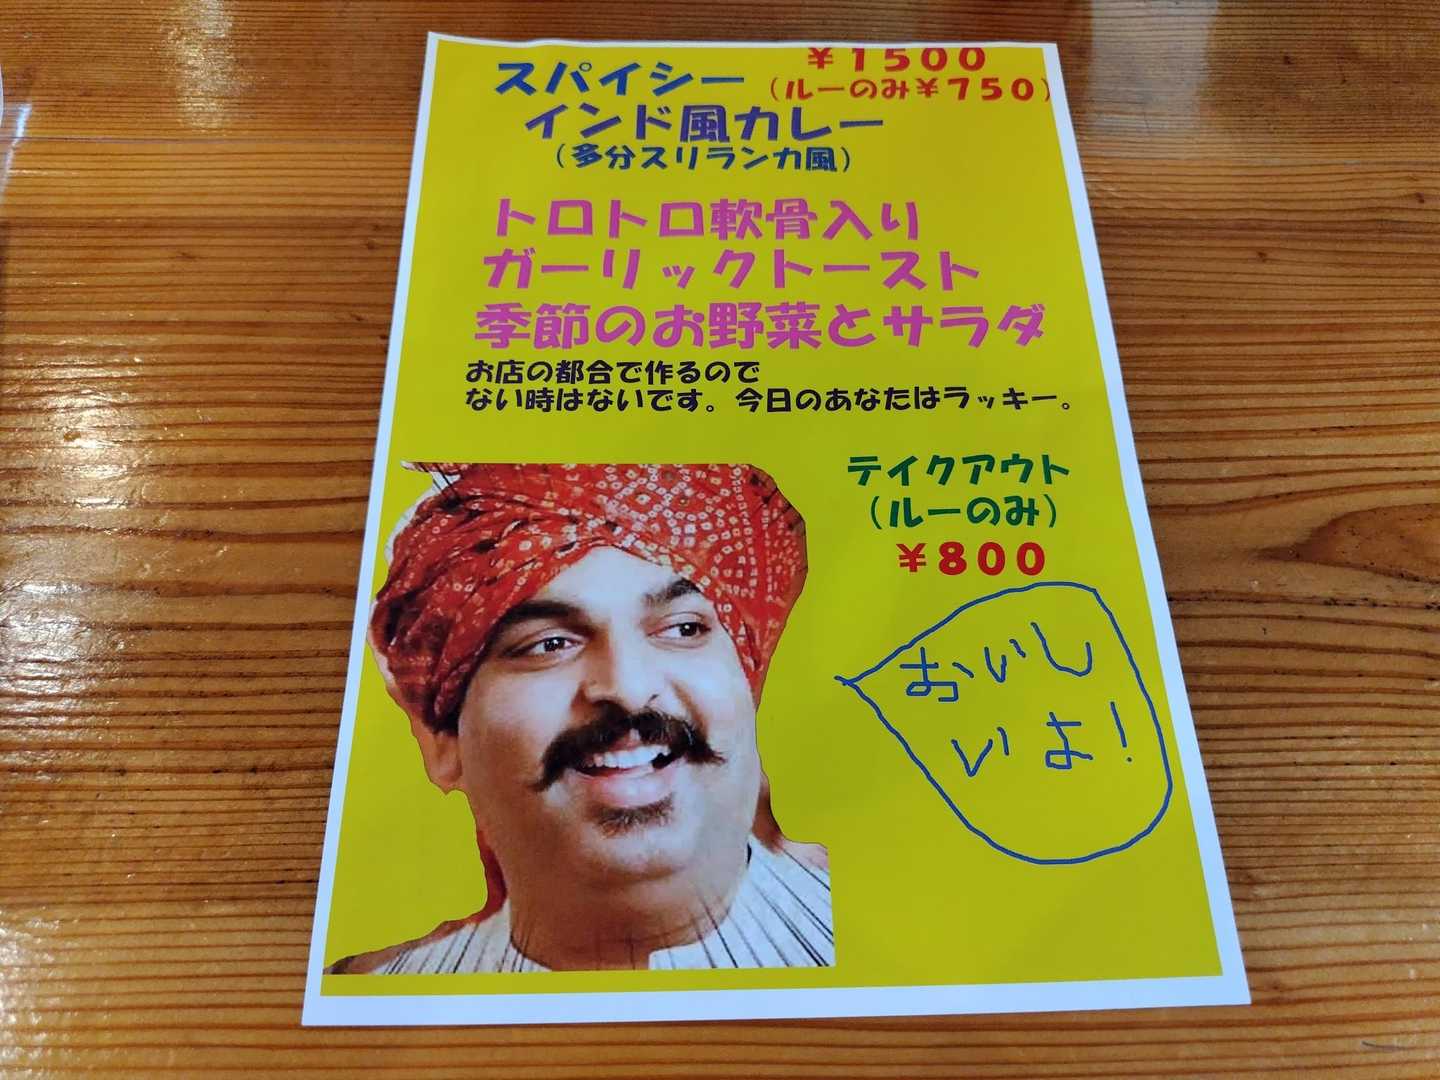 スパイシー
¥1500
(ルーのみ¥750)
インド風カレー
(多分スリランカ風)
トロトロ軟骨入り
ガーリックトースト
季節のお野菜とサラダ
お店の都合で作るので
ない時はないです。今日のあなたはラッキー。
テイクアウト
(ルーのみ)
¥800
おいし
いよ!